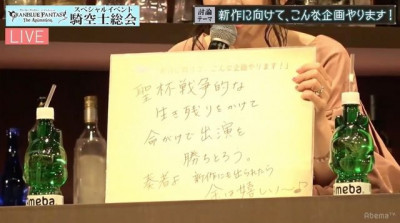 GRANBLUE FANTASY
The Animation
スペシャルイベント
騎空士総会
討論
テーマ
新作に向けて、こんな企画やります!
LIVE
こんな企画やります!」
聖杯戦争的な
生き残りをかけて
命がけで出演を
勝ちとろう。
奏者よ 新作にも出られたら
余は嬉しい〜♪
meba.
meba.
AbemaTV